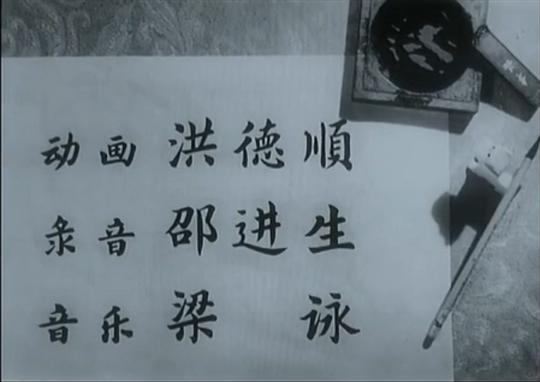 动画 洪德順
录音 邵进生
音乐 梁 詠